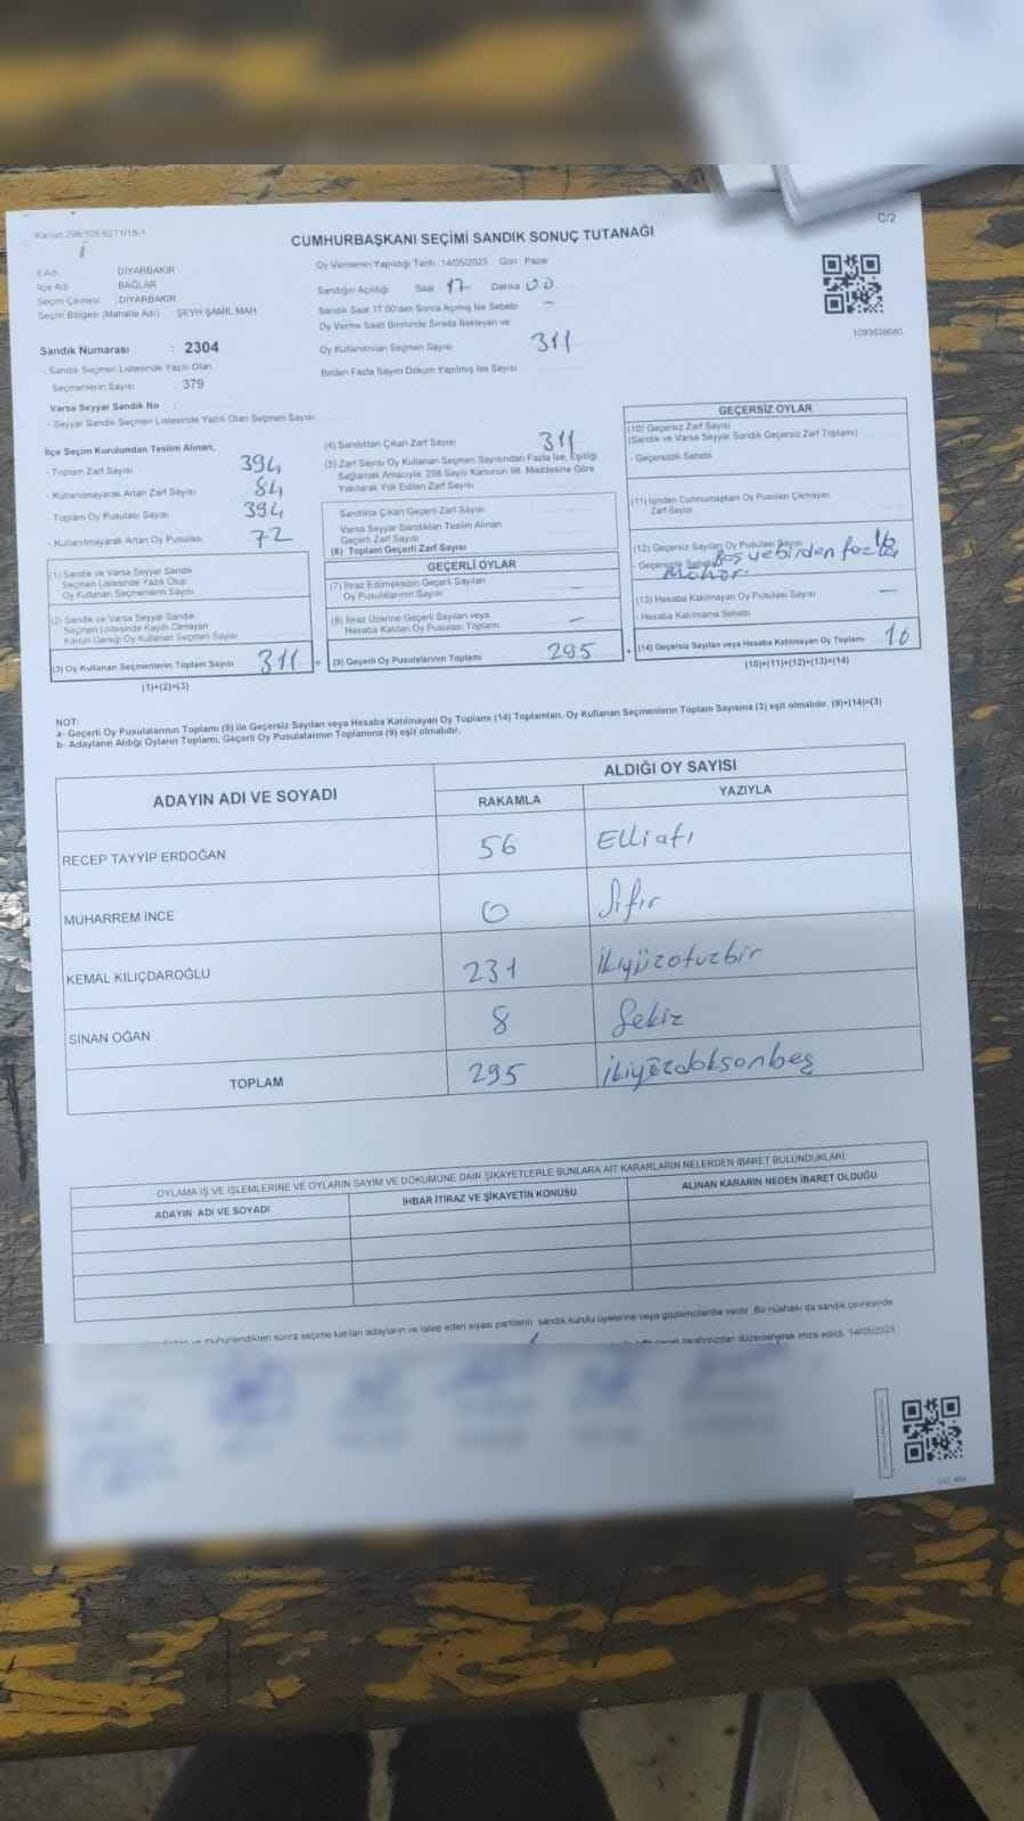 C/2
CUMHURBAŞKANI SEÇİMİ SANDIK SONUÇ TUTANAĞI
İl Adı DİYARBAKIR
İlçe Adı BAĞLAR
Seçim Çevresi DİYARBAKIR
Seçim Bölgesi (Mahalle Adı) ŞEYH ŞAMİL MAH
Oy Vermenin Yapıldığı Tarih: 14/05/2023 Gün: Pazar
Sandığın Açıldığı Saat 17 Dakika 00
Sandık Saat 17.00'den Sonra Açılmış İse Sebebi: -
Oy Verme Saati Bitiminde Sırada Bekleyen ve
Oy Kullandırılan Seçmen Sayısı 311
Birden Fazla Sayım Döküm Yapılmış İse Sayısı
Sandık Numarası : 2304
- Sandık Seçmen Listesinde Yazılı Olan
Seçmenlerin Sayısı 379
Varsa Seyyar Sandık No :
- Seyyar Sandık Seçmen Listesinde Yazılı Olan Seçmen Sayısı
İlçe Seçim Kurulundan Teslim Alınan,
- Toplam Zarf Sayısı 394
- Kullanılmayarak Artan Zarf Sayısı 84
- Toplam Oy Pusulası Sayısı 394
- Kullanılmayarak Artan Oy Pusulası 72
(1) Sandık ve Varsa Seyyar Sandık
Seçmen Listesinde Yazılı Olup
Oy Kullanan Seçmenlerin Sayısı
(2) Sandık ve Varsa Seyyar Sandık
Seçmen Listesinde Kayıtlı Olmayan
Kanun Gereği Oy Kullanan Seçmen Sayısı
(3) Oy Kullanan Seçmenlerin Toplam Sayısı 311
(1)+(2)=(3)
(4) Sandıktan Çıkan Zarf Sayısı 311
(5) Zarf Sayısı Oy Kullanan Seçmen Sayısından Fazla İse, Eşitliği
Sağlamak Amacıyla 298 Sayılı Kanunun 98. Maddesine Göre
Yakılarak Yok Edilen Zarf Sayısı
Sandıkta Çıkan Geçerli Zarf Sayısı
Varsa Seyyar Sandıktan Teslim Alınan
Geçerli Zarf Sayısı
(6) Toplam Geçerli Zarf Sayısı
GEÇERLİ OYLAR
(7) İtiraz Edilmeksizin Geçerli Sayılan
Oy Pusulalarının Sayısı
(8) İtiraz Üzerine Geçerli Sayılan veya
Hesaba Katılan Oy Pusulası Toplamı -
= (9) Geçerli Oy Pusulalarının Toplamı 295
GEÇERSİZ OYLAR
(10) Geçersiz Zarf Sayısı
(Sandık ve Varsa Seyyar Sandık Geçersiz Zarf Toplamı)
- Geçersizlik Sebebi
(11) İçinden Cumhurbaşkanı Oy Pusulası Çıkmayan
Zarf Sayısı
(12) Geçersiz Sayılan Oy Pusulası Sayısı 16
Geçersizlik Sebebi Boş ve birden fazla
Mühür.
(13) Hesaba Katılmayan Oy Pusulası Sayısı -
- Hesaba Katılmama Sebebi
+ (14) Geçersiz Sayılan veya Hesaba Katılmayan Oy Toplamı 16
(10)+(11)+(12)+(13)=(14)
NOT:
a- Geçerli Oy Pusulalarının Toplamı (9) ile Geçersiz Sayılan veya Hesaba Katılmayan Oy Toplamı (14) Toplamları, Oy Kullanan Seçmenlerin Toplam Sayısına (3) eşit olmalıdır. (9)+(14)=(3)
b- Adayların Aldığı Oyların Toplamı, Geçerli Oy Pusulalarının Toplamına (9) eşit olmalıdır.
ADAYIN ADI VE SOYADI
ALDIĞI OY SAYISI
RAKAMLA YAZIYLA
RECEP TAYYİP ERDOĞAN 56 Elli altı
MUHARREM İNCE 0 Sıfır
KEMAL KILIÇDAROĞLU 231 ikiyüzotuzbir
SİNAN OĞAN 8 Sekiz
TOPLAM 295 ikiyüzdoksonbeş
OYLAMA İŞ VE İŞLEMLERİNE VE OYLARIN SAYIM VE DÖKÜMÜNE DAİR ŞİKAYETLERLE BUNLARA AİT KARARLARIN NELERDEN İBARET BULUNDUKLARI
ADAYIN ADI VE SOYADI İHBAR İTİRAZ VE ŞİKAYETİN KONUSU ALINAN KARARIN NEDEN İBARET OLDUĞU
mühürlendikten sonra seçime katılan adayların ve talep eden siyasi partilerin sandık kurulu üyelerine veya gözlemcilerine verilir. Bir nüshası da sandık çevresinde
tarafımızdan düzenlenerek imza edildi. 14/05/2023